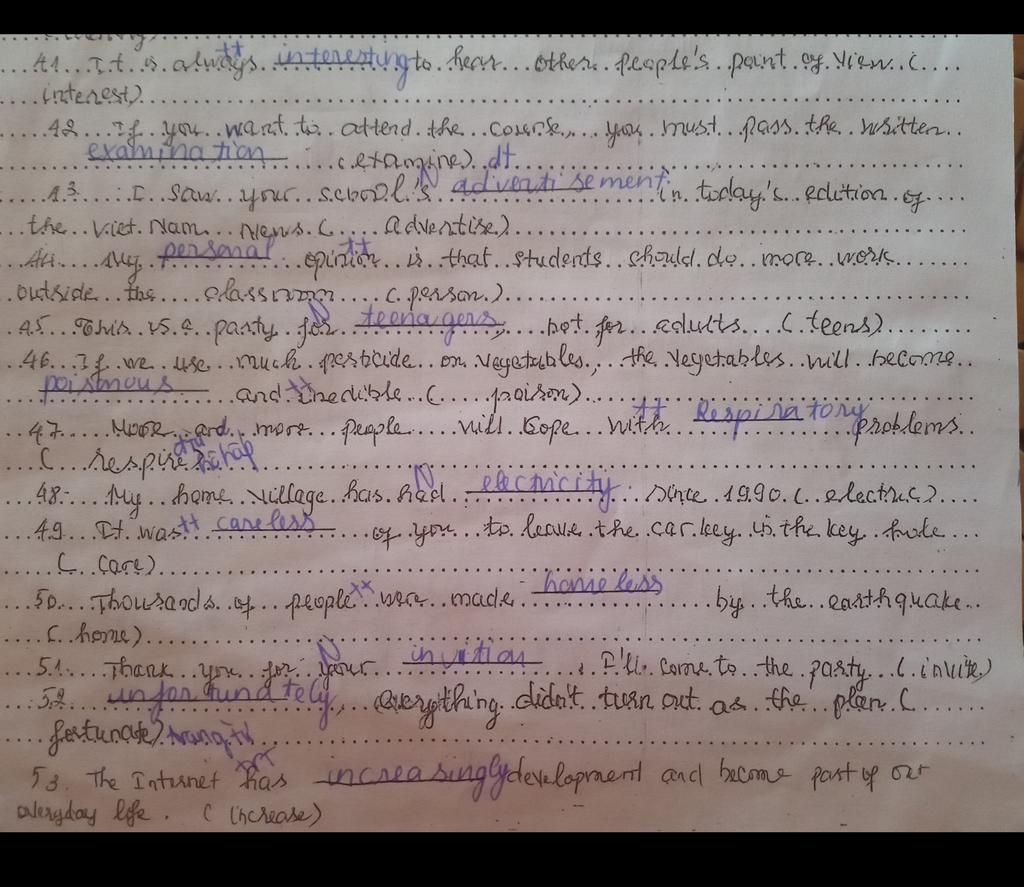 41. It is always interesting to hear other people's point of view (
interest)
42. If you want to attend the course, you must pass the written
examination (examine) dt
43. I saw your school's advertisement in today's edition of
the Viet Nam News. ( advertise)
44. My personal opinion is that students should do more work
outside the classroom ( person )
45 This is a party for teenagers, not for adults ( teens)
46. If we use much pesticide on vegetables, the vegetables will become
poisonous and inedible ( poison)
47. More and more people will cope with Respiratory problems
( respire)
48. My home village has had electricity since 1990. ( electric )
49. It was careless of you to leave the car key in the key hole
( care)
50. Thousands of people were made homeless by the earthquake
( home)
51. Thank you for your invition. I'll come to the party ( invite)
52. unfortundtely, everything didn't turn out as the plan (
fortunate) trạng từ
53. The Internet has increasingly development and become part of our
everyday life. ( increase)